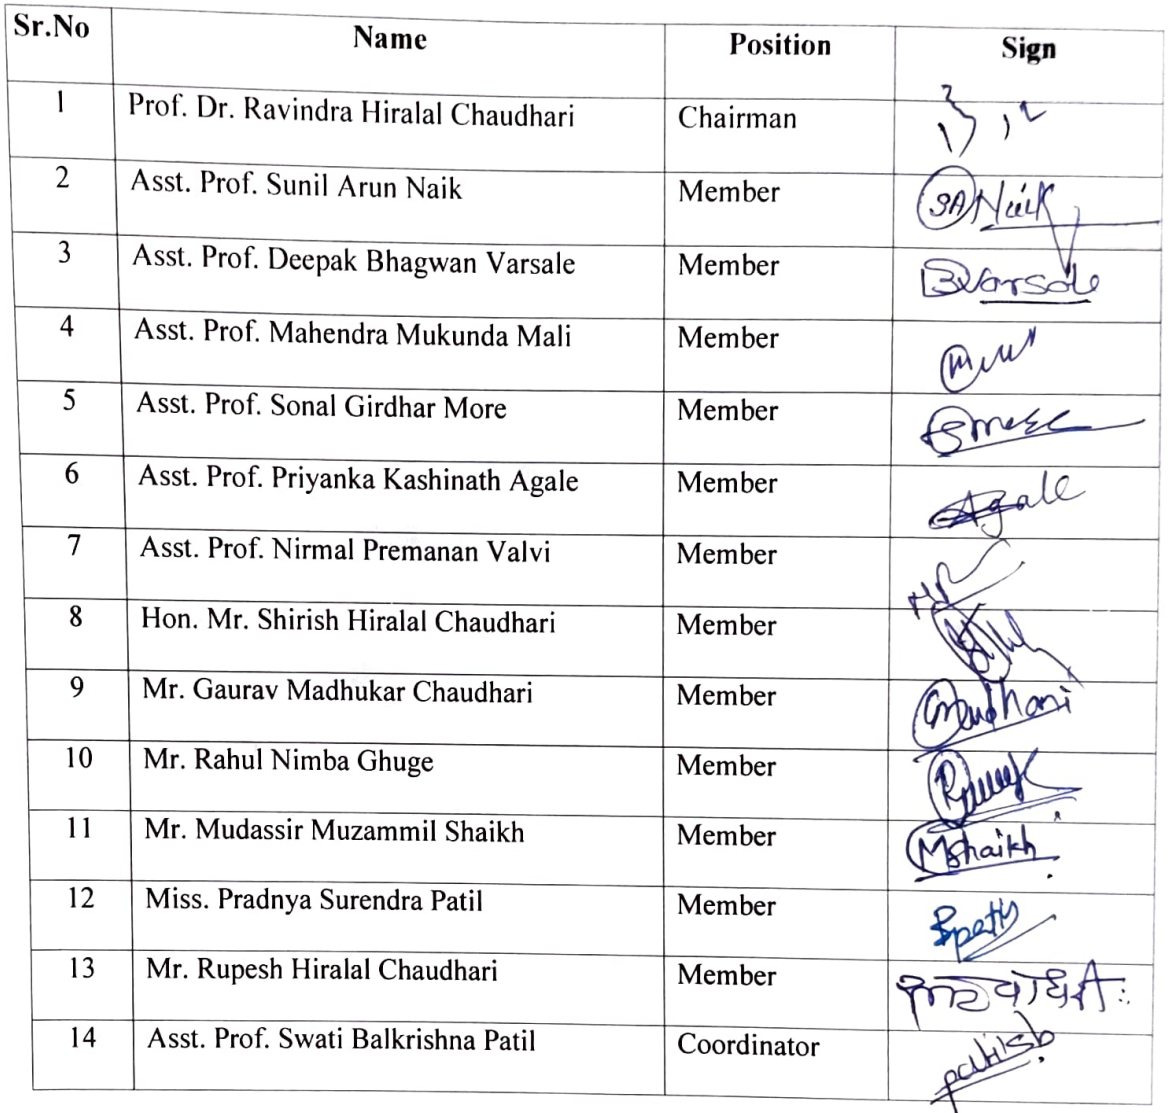 Sr.No Name Position Sign
1 Prof. Dr. Ravindra Hiralal Chaudhari Chairman
2 Asst. Prof. Sunil Arun Naik Member SANaik
3 Asst. Prof. Deepak Bhagwan Varsale Member BVarsale
4 Asst. Prof. Mahendra Mukunda Mali Member
5 Asst. Prof. Sonal Girdhar More Member
6 Asst. Prof. Priyanka Kashinath Agale Member Agale
7 Asst. Prof. Nirmal Premanan Valvi Member
8 Hon. Mr. Shirish Hiralal Chaudhari Member
9 Mr. Gaurav Madhukar Chaudhari Member
10 Mr. Rahul Nimba Ghuge Member
11 Mr. Mudassir Muzammil Shaikh Member MShaikh
12 Miss. Pradnya Surendra Patil Member
13 Mr. Rupesh Hiralal Chaudhari Member
14 Asst. Prof. Swati Balkrishna Patil Coordinator patilsb